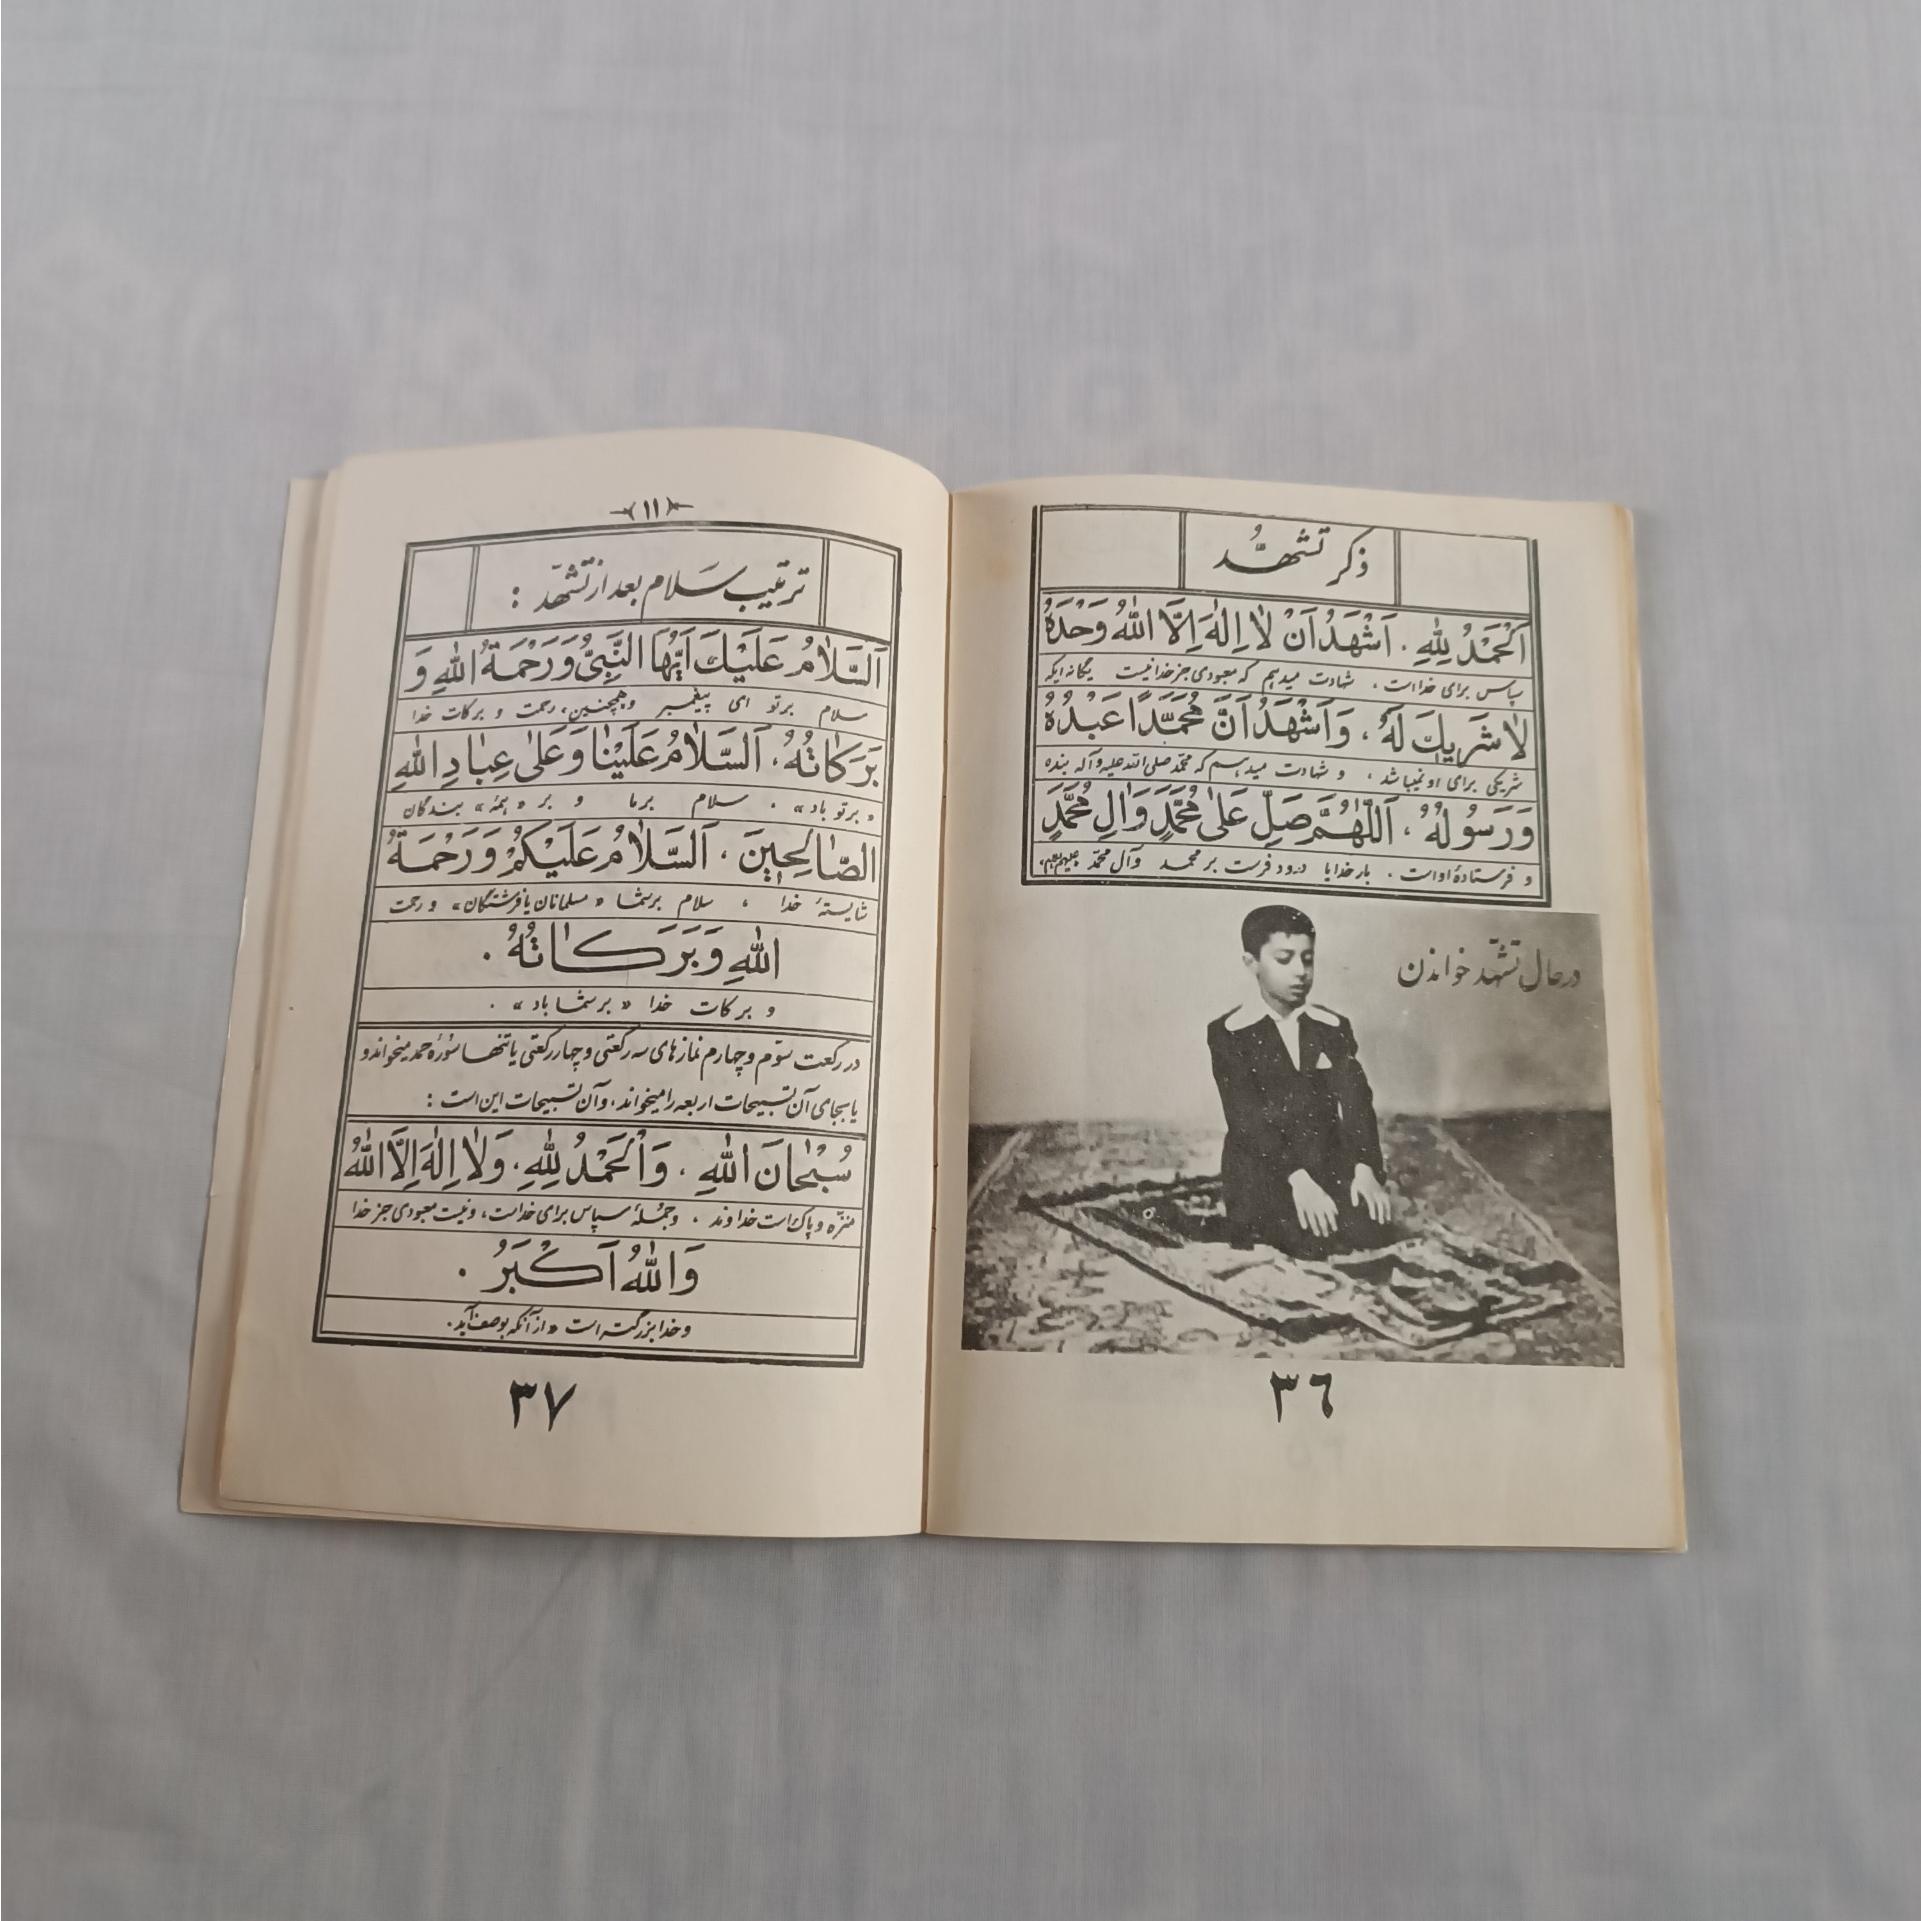 ذکر تشهّد
اَلْحَمْدُ لِلّٰهِ . اَشْهَدُ اَنْ لٰا اِلٰهَ اِلَّا اللّٰهُ وَحْدَهُ
سپاس برای خدا است . شهادت میدهم که معبودی جز خدا نیست یگانه ایکه
لٰا شَرِيكَ لَهُ ، وَ اَشْهَدُ اَنَّ مُحَمَّدًا عَبْدُهُ
شریکی برای او نمیباشد ، و شهادت میدهم که محمّد صلی الله علیه و آله بنده
وَ رَسُولُهُ ، اَللّٰهُمَّ صَلِّ عَلىٰ مُحَمَّدٍ وَ اٰلِ مُحَمَّدٍ
و فرستادهٔ او است . بار خدایا درود فرست بر محمد و آل محمّد
در حال تشهّد خواندن
۳٦
۱۱
ترتیب سَلام بعد از تشهّد :
اَلسَّلٰامُ عَلَيْكَ اَيُّهَا النَّبِىُّ وَ رَحْمَةُ اللّٰهِ وَ
سلام بر تو ای پیغمبر و همچنین، رحمت و برکات خدا
بَرَكٰاتُهُ ، اَلسَّلٰامُ عَلَيْنٰا وَ عَلىٰ عِبٰادِ اللّٰهِ
« بر تو باد » . سلام بر ما و بر « همهٔ » بندگان
الصّٰالِحِينَ ، اَلسَّلٰامُ عَلَيْكُمْ وَ رَحْمَةُ
شایستهٔ خدا ، سلام بر شما « مسلمانان یا فرشتگان » و رحمت
اللّٰهِ وَ بَرَكٰاتُهُ .
و برکات خدا « بر شما باد » .
در رکعت سوّم و چهارم نمازهای سه رکعتی و چهار رکعتی یا تنها سورهٔ حمد میخواند و
یا بجای آن تسبیحات اربعه را میخواند، و آن تسبیحات این است :
سُبْحٰانَ اللّٰهِ ، وَ الْحَمْدُ لِلّٰهِ ، وَ لٰا اِلٰهَ اِلَّا اللّٰهُ
منزّه و پاک است خداوند ، و جملهٔ سپاس برای خداست ، و نیست معبودی جز خدا
وَ اللّٰهُ اَكْبَرُ .
و خدا بزرگتر است « از آنکه بوصف آید .
۳۷